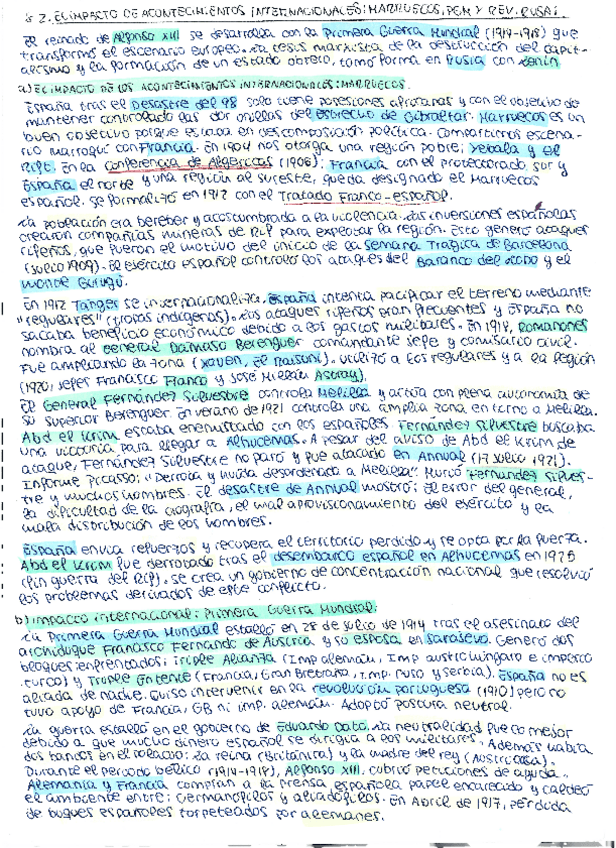 5.2. EL IMPACTO DE ACONTECIMIENTOS INTERNACIONALES: MARRUECOS, PGM Y REV. RUSA:
El reinado de Alfonso XIII se desarrolla con la Primera Guerra Mundial (1914-1918) que
transformó el escenario europeo. La tesis marxista de la destrucción del capit-
alismo y la formación de un estado obrero, tomó forma en Rusia con Lenin
a) EL IMPACTO DE LOS ACONTECIMIENTOS INTERNACIONALES: MARRUECOS.
España tras el desastre del 98 solo tiene posesiones africanas y con el objetivo de
mantener controlado las dor orillas del estrecho de Gibraltar. Marruecos es un
buen objetivo porque estaba en descomposición política. Compartimos escena-
rio marroquí con Francia. En 1904 nos otorga una región pobre; Yebala y el
Rift. En la Conferencia de Algeciras (1906); Francia con el protectorado sur y
España el norte y una región al sureste, queda designado el Marruecos
español. Se formalizó en 1912 con el Tratado Franco-español.
La población era bereber y acostumbrada a la violencia. Las inversiones españolas
crearon compañías mineras de Rif para explotar la región. Esto generó ataques
rifeños, que fueron el motivo del inicio de la Semana Trágica de Barcelona
(julio 1909). El ejército español controló los ataques del Baranco del Lobo y el
Monte Gurugú.
En 1912 Tánger se internacionaliza. España intenta pacificar el terreno mediante
"regulares" (tropas indígenas). Los ataques rifeños eran frecuentes y España no
sacaba beneficio económico debido a los gastos militares. En 1918, Romanones
nombra al General Dámaso Berenguer comandante jefe y comisario civil.
Fue ampliando la zona (Xauen, El Raisuni). Utilizó a los regulares y a la legión
(1920, jefes Francisco Franco y José Millán Astray).
El General Fernández Silvestre controla Melilla y actúa con plena autonomía de
su superior Berenguer. En verano de 1921 controla una amplia zona en torno a Melilla.
Abd el Krim estaba enemistado con los españoles. Fernández Silvestre buscaba
una victoria para llegar a Alhucemas. A pesar del aviso de Abd el Krim de
ataque, Fernández Silvestre no paró y fue atacado en Annual (17 julio 1921).
Informe Picasso: "Derrota y huida desordenada a Melilla". Murió Fernández Silves-
tre y muchos hombres. El desastre de Annual mostró: El error del general,
la dificultad de la orografía, el mal aprovisionamiento del ejército y la
mala distribución de los hombres.
España envía refuerzos y recupera el territorio perdido y se opta por la fuerza.
Abd el Krim fue derrotado tras el desembarco español en Alhucemas en 1925
(fin guerra del Rif). Se crea un gobierno de concentración nacional que resolvió
los problemas derivados de este conflicto.
b) Impacto internacional: Primera Guerra Mundial:
La Primera Guerra Mundial estalló en 28 de julio de 1914 tras el asesinato del
archiduque Francisco Fernando de Austria y su esposa en Sarajevo. Generó dos
bloques enfrentados: Triple Alianza (Imp alemán, Imp austrohúngaro e imperio
turco) y Triple Entente (Francia, Gran Bretaña, Imp. ruso y Serbia). España no es
aliada de nadie. Quiso intervenir en la revolución portuguesa (1910) pero no
tuvo apoyo de Francia, GB ni imp. alemán. Adoptó postura neutral.
La guerra estalló en el gobierno de Eduardo Dato. La neutralidad fue lo mejor
debido a que mucho dinero español se dirigía a los militares. Además había
dos bandos en el palacio: La reina (Británica) y la madre del rey (Austriaca).
Durante el periodo bélico (1914-1918), Alfonso XIII cubrió peticiones de ayuda.
Alemania y Francia compran a la prensa española papel encarecido y caldeó
el ambiente entre: Germanófilos y aliadófilos. En Abril de 1917, pérdida
de buques españoles torpeteados por alemanes.